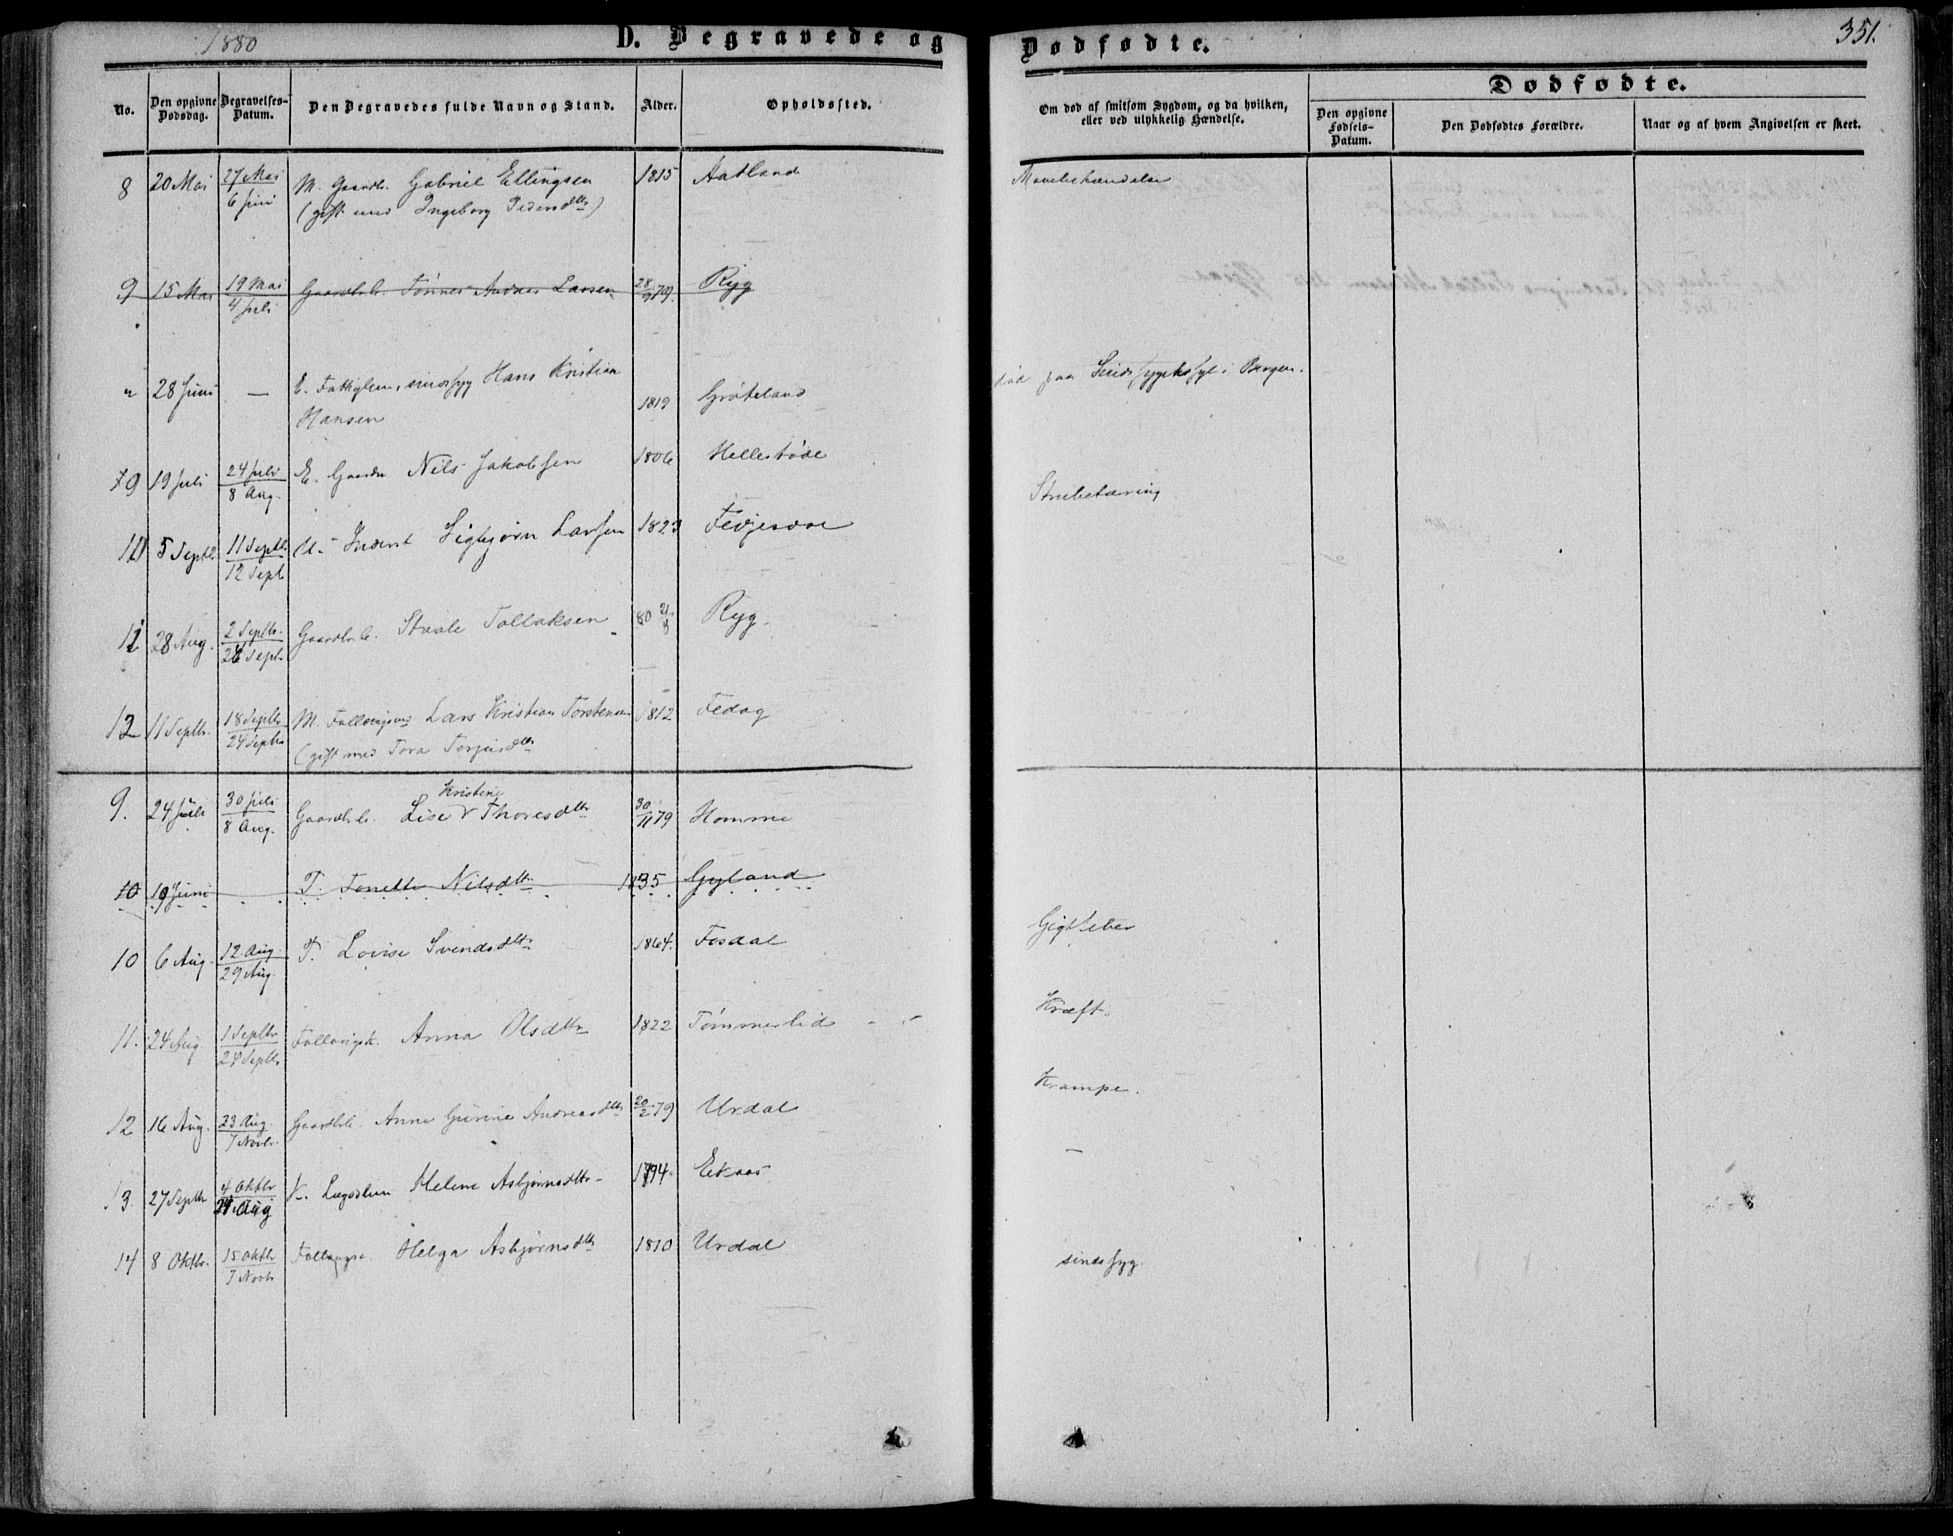 1880
D. Begravede og
Dødfødte.
351.
No.
Den opgivne Dødsdag.
Begravelses-Datum.
Den Begravedes fulde Navn og Stand.
Alder.
Opholdssted.
Om død af smitsom Sygdom, og da hvilken, eller ved ulykkelig Hændelse.
Dødfødte.
Den opgivne Fødsels-Datum.
Den Dødfødtes Forældre.
Naar og af hvem Angivelsen er skeet.
8 20 Mai 27 Mai M. Gaardb. Gabriel Ellingsen 1815 Aatland
6 Juni (gift med Ingeborg Pedersdtr)
9 15 Mai 19 Mai Gaardbr b. Tønnes Andreas Larsen 28/9 79. Ryg
4 Juli
" 28 Juni — E. Fattiglem, sindssyg Hans Kristian død paa i Bergen.
Hansen 1819 Grøteland
9 19 Juli 24 Juli E. Gaardm Nils Jakobsen 1806 Hellestøde
8 Aug. Strubetæring
10 5 Septb. 11 Septbr. U. Inderst Sigbjørn Larsen 1823
12 Sept
11 28 Aug. 2 Septbr. Gaardbr b. Staale Tollaksen 80 21/8 Ryg.
26 Septb.
12 11 Septbr. 18 Septbr M. Lars Kristian Torstensen 1812 Fedog
24 Septbr (gift med Tora Torjusdtr
9. 24 Juli 30 Juli Gaardbr b. Lise Kristine Thoresdtr 30/11 79 Homme
8 Aug.
10 19 Juni T. Tonette Nilsdtr 1835 Gyland
10 6 Aug. 12 Aug. T. Lovise Svendsdtr 1864. Fosdal Gigtfeber
29 Aug.
11. 24 Aug. 1 Septbr Anna Olsdtr 1822 Tømmerlid Kræft.
24 Septbr
12 16 Aug. 23 Aug. Gaardbr b. Anne Gurine Andreasdtr 20/2 79 Urdal Krampe.
7 Novbr.
13 27 Septbr 4 Oktbr K. Lægdslem Helene Asbjørnsdtr 1794 Eikaas —
24 Aug
14 8 Oktbr. 15 Oktbr Helga Asbjørnsdtr 1810 Urdal sindssyg.
7 Novbr